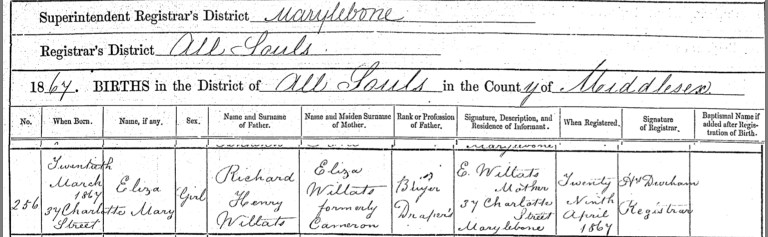 Superintendent Registrar's District Marylebone
Registrar's District All Souls
1867. BIRTHS in the District of All Souls in the County of Middlesex
No. When Born. Name, if any. Sex. Name and Surname of Father. Name and Maiden Surname of Mother. Rank or Profession of Father. Signature, Description, and Residence of Informant. When Registered. Signature of Registrar. Baptismal Name if added after Registration of Birth.
Marylebone
256
Twentieth
March
1867
37 Charlotte
Street
Eliza
Mary
Girl
Richard
Henry
Willats
Eliza
Willats
formerly
Cameron
Buyer
Draper's
E. Willats
Mother
37 Charlotte
Street
Marylebone
Twenty
Ninth
April
1867
Registrar